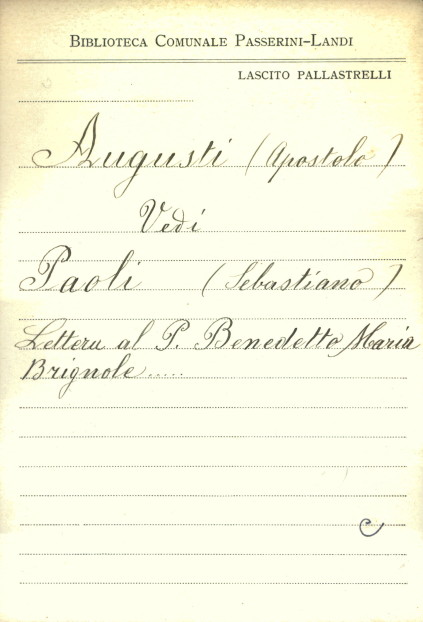 BIBLIOTECA COMUNALE PASSERINI-LANDI
LASCITO PALLASTRELLI
Augusti (Apostolo)
Vedi
Paoli (Sebastiano)
Lettera al P. Benedetto Maria
Brignole.....